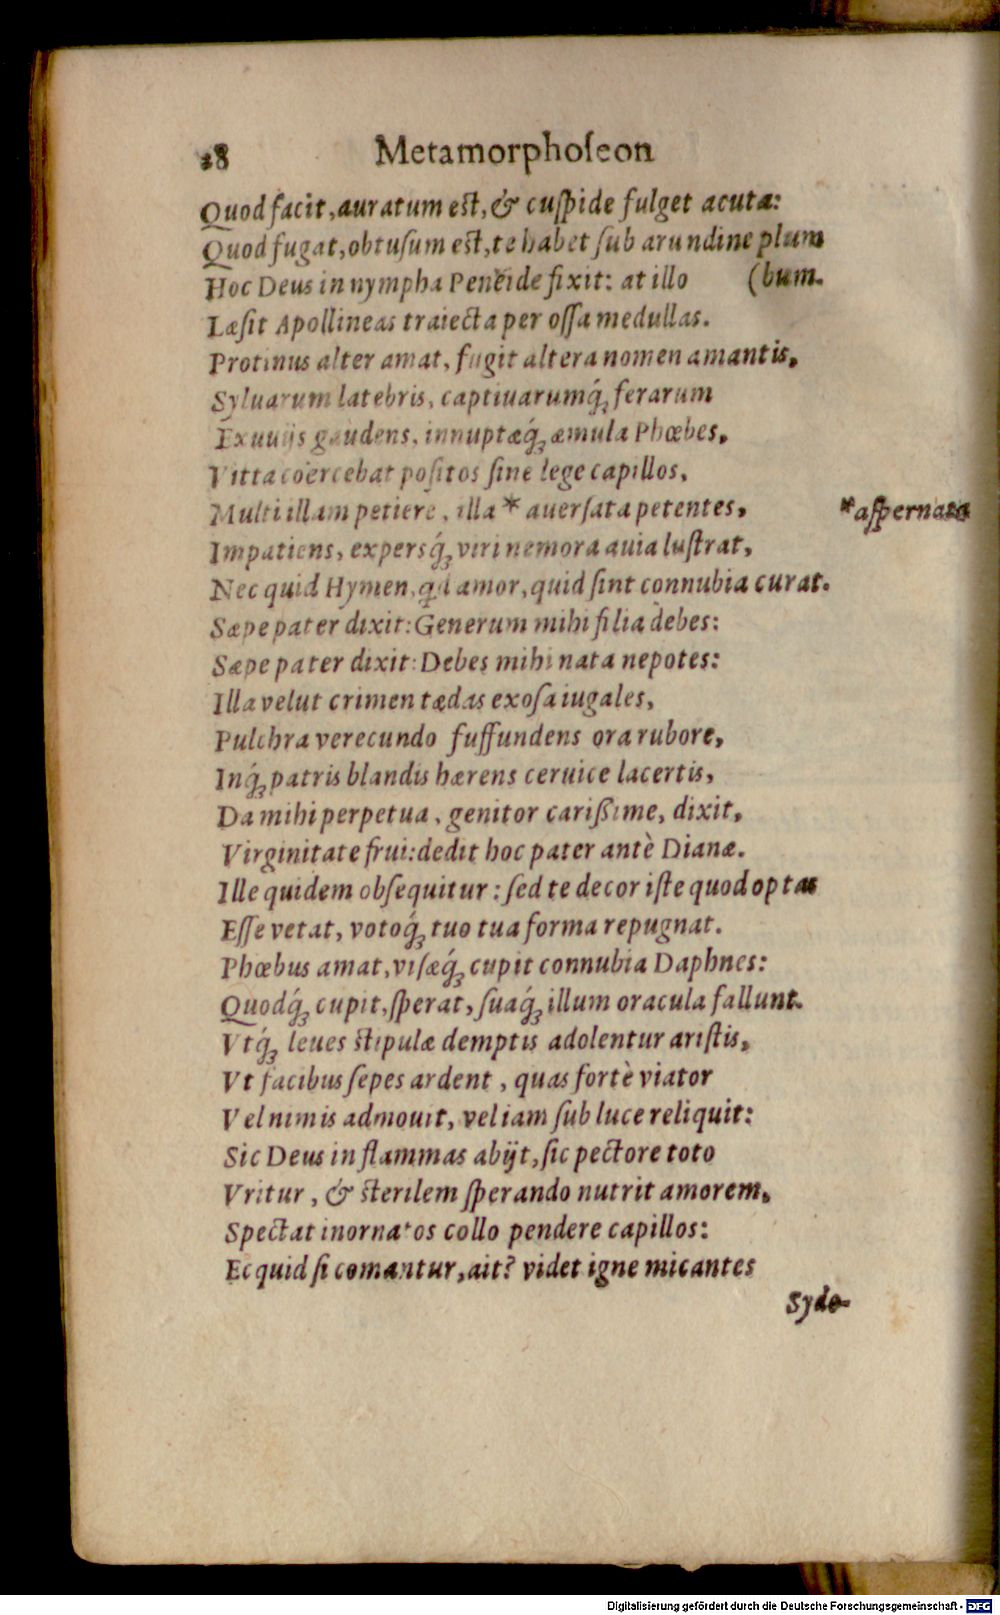 28 Metamorphoſeon
Quod facit, auratum est, & cuſpide fulget acuta:
Quod fugat, obtuſum est, te habet ſub arundine plum
Hoc Deus in nympha Peneïde fixit: at illo (bum.
Læſit Apollineas traiecta per oſſa medullas.
Protinus alter amat, fugit altera nomen amantis,
Syluarum latebris, captiuarumq́; ferarum
Exuuijs gaudens, innuptæq́; æmula Phœbes,
Vitta coërcebat poſitos ſine lege capillos,
Multi illam petiere, illa * auerſata petentes, *aſpernata
Impatiens, expersq́; viri nemora auia luſtrat,
Nec quid Hymen, qd amor, quid ſint connubia curat.
Sæpe pater dixit: Generum mihi filia debes:
Sæpe pater dixit: Debes mihi nata nepotes:
Illa velut crimen tædas exoſa iugales,
Pulchra verecundo ſuffundens ora rubore,
Inq́; patris blandis hærens ceruice lacertis,
Da mihi perpetua, genitor carißime, dixit,
Virginitate frui: dedit hoc pater antè Dianæ.
Ille quidem obſequitur: ſed te decor iſte quod optas
Eſſe vetat, votoq́; tuo tua forma repugnat.
Phœbus amat, viſæq́; cupit connubia Daphnes:
Quodq́; cupit, ſperat, ſuaq́; illum oracula fallunt.
Vtq́; leues stipulæ demptis adolentur ariſtis,
Vt facibus ſepes ardent, quas fortè viator
Vel nimis admouit, vel iam ſub luce reliquit:
Sic Deus in flammas abijt, ſic pectore toto
Vritur, & sterilem ſperando nutrit amorem,
Spectat inornatos collo pendere capillos:
Ecquid ſi comantur, ait? videt igne micantes
Sydo-
Digitalisierung gefördert durch die Deutsche Forschungsgemeinschaft - DFG